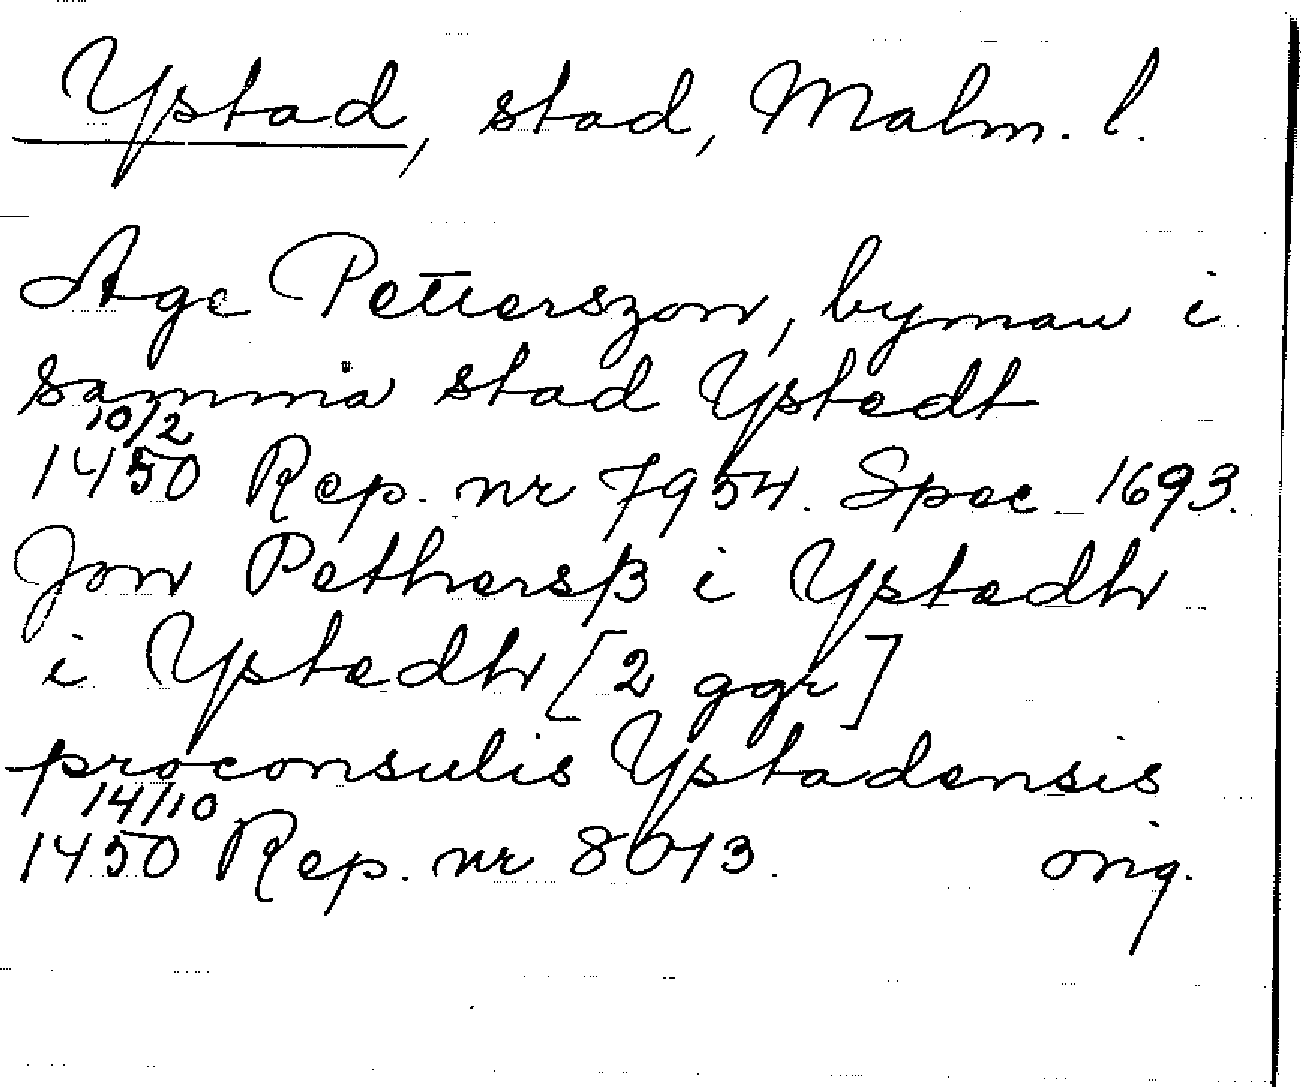 Ystad, stad, Malm. l.
Age Petterszon, byman i
samma stad Ystedt
10/2
1450 Rep. nr 7954. Spec. 1693.
Jon Pethersß i Ystedh
i Ystedh [2 ggr]
proconsulis Ystadensis
14/10
1450 Rep. nr 8013. orig.